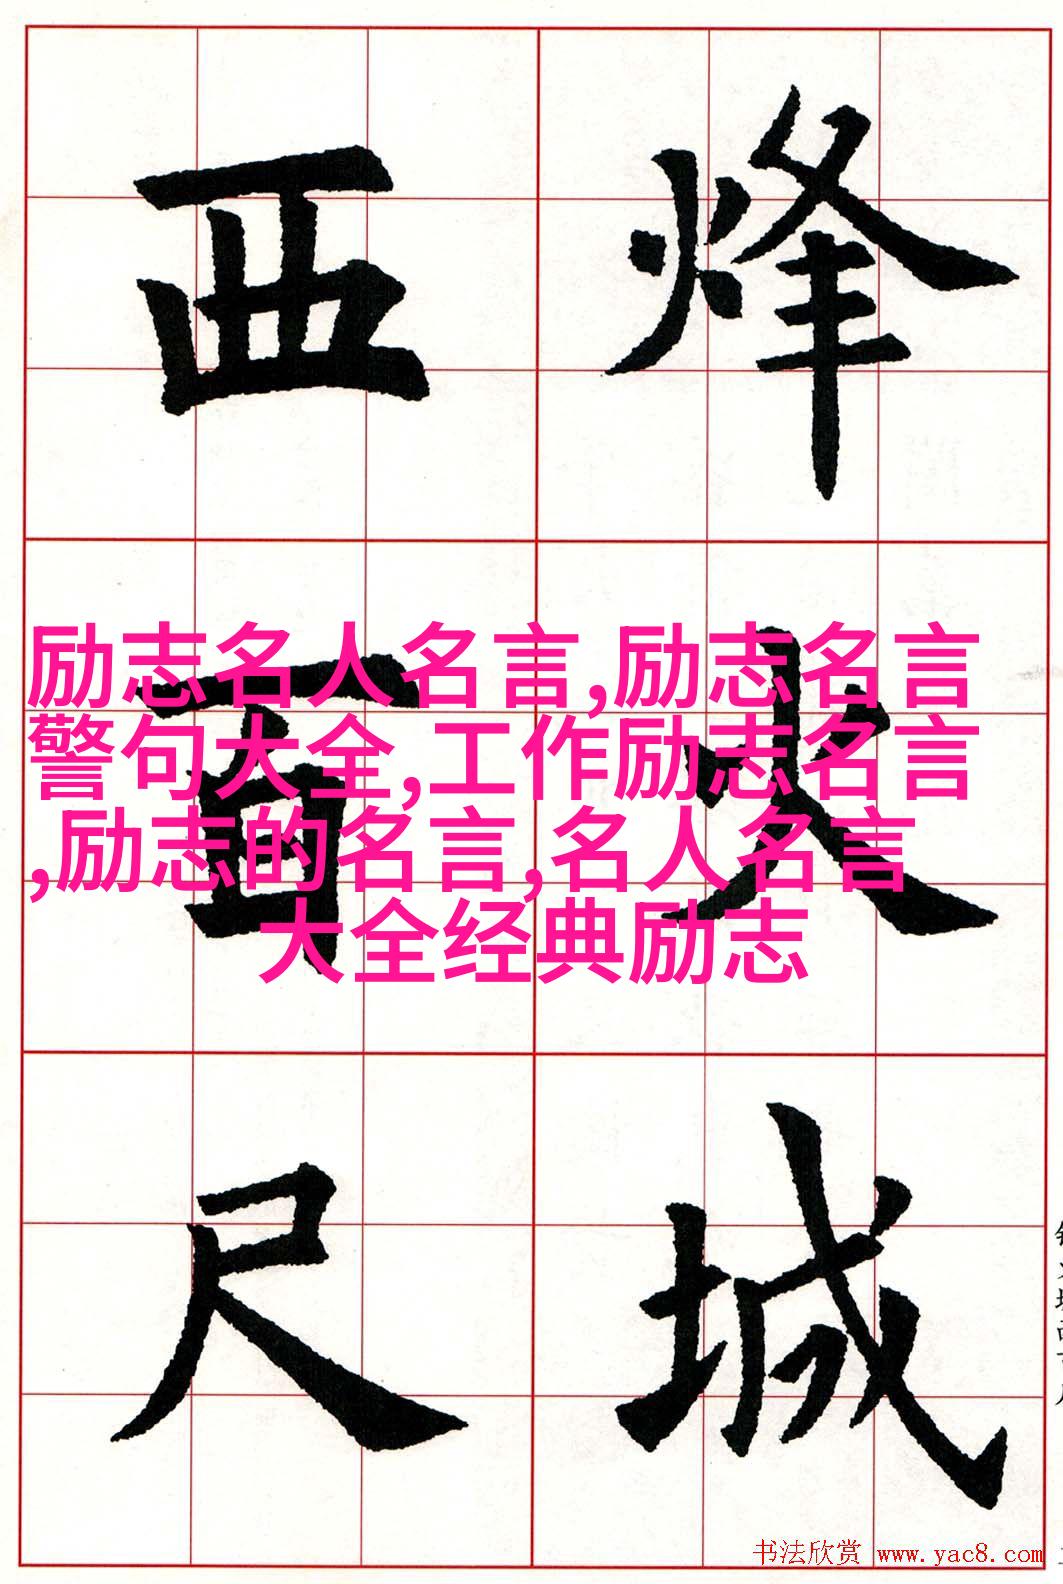 烽火城
西百尺
励志名人名言,励志名言
警句大全,工作励志名言
,励志的名言,名人名言
大全经典励志
书法欣赏 www.yac8.com